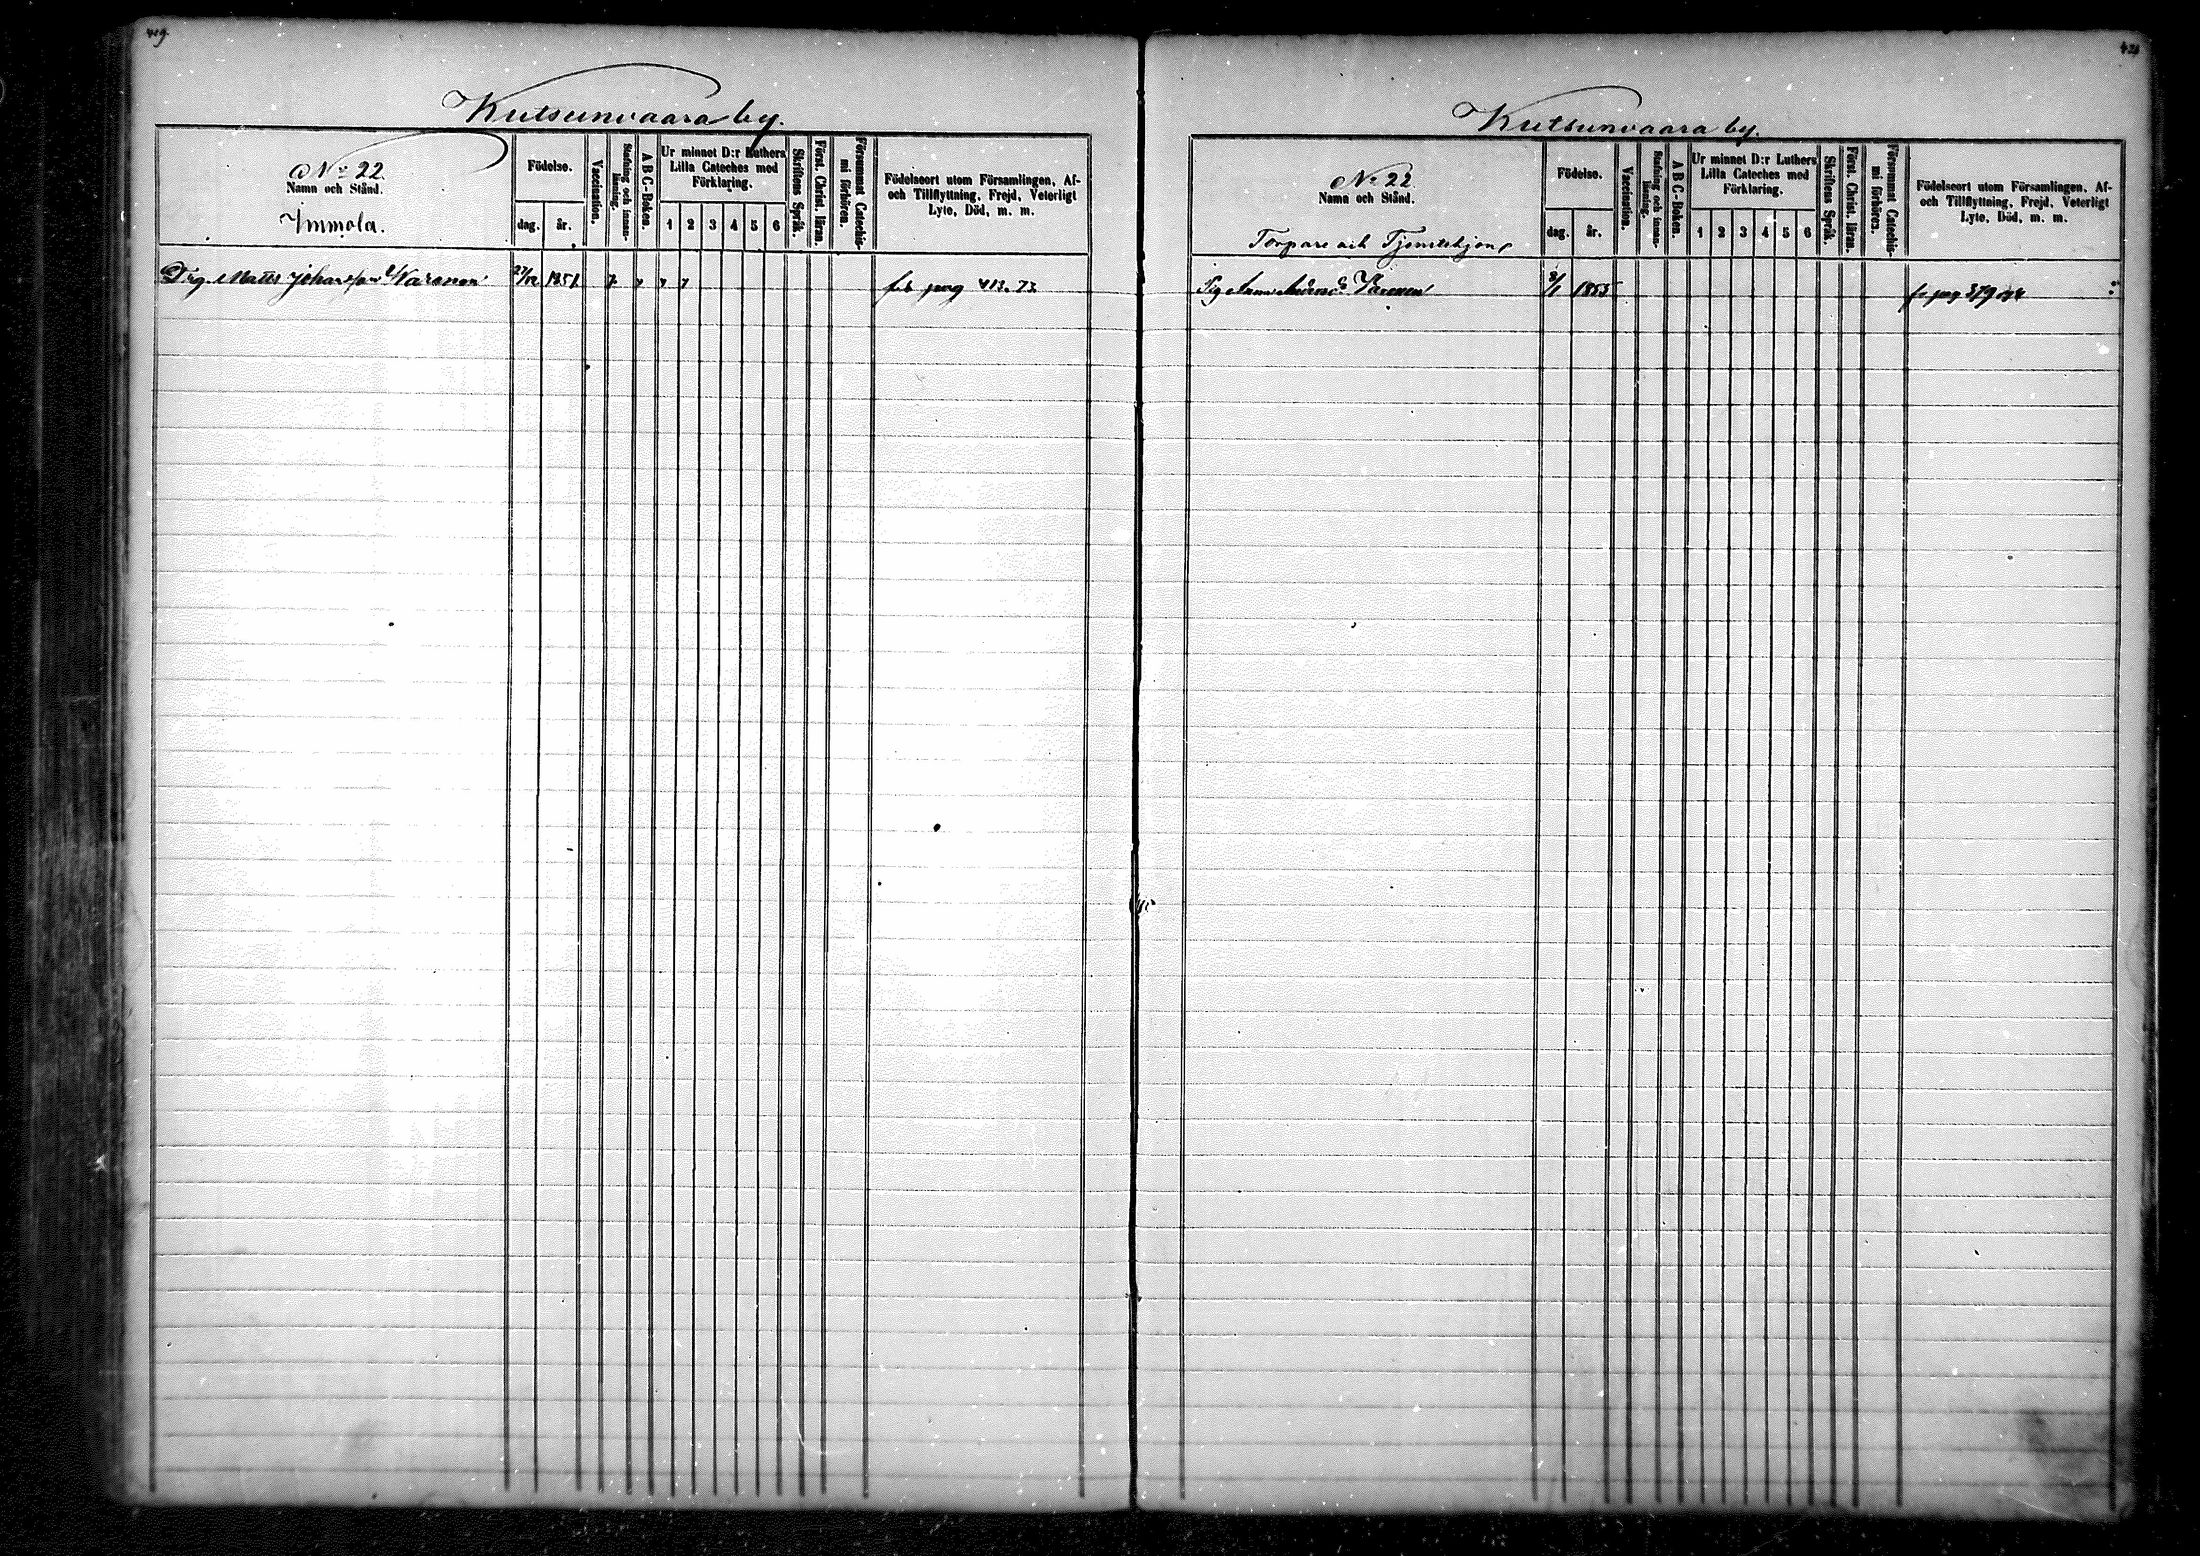 419
Kutsunvaara by.
No 22
Namn och Stånd.
Immola.
Födelse.
dag.
år.
Vaccination.
Stafning och innan-
läsning.
A B C-Boken.
Ur minnet D:r Luthers
Lilla Cateches med
Förklaring.
1 2 3 4 5 6
Skriftens Språk.
Först. Christ. läran.
Försummat Catechis-
mi förhören.
Födelseort utom Församlingen, Af-
och Tillflyttning, Frejd, Veterligt
Lyte, Död, m. m.
Drg. Matts Johansson 27/12 1851 pag 413. 73.
Kutsunvaara by.
No 22
Namn och Stånd.
Torpare och Tjenstehjon
Födelse.
dag.
år.
Vaccination.
Stafning och innan-
läsning.
A B C-Boken.
Ur minnet D:r Luthers
Lilla Cateches med
Förklaring.
1 2 3 4 5 6
Skriftens Språk.
Först. Christ. läran.
Försummat Catechis-
mi förhören.
Födelseort utom Församlingen, Af-
och Tillflyttning, Frejd, Veterligt
Lyte, Död, m. m.
Pig Anna 1853 pag 379